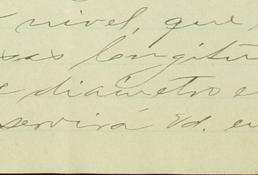 nivel, que
sas longitu
diametro e
servirá Vd. en